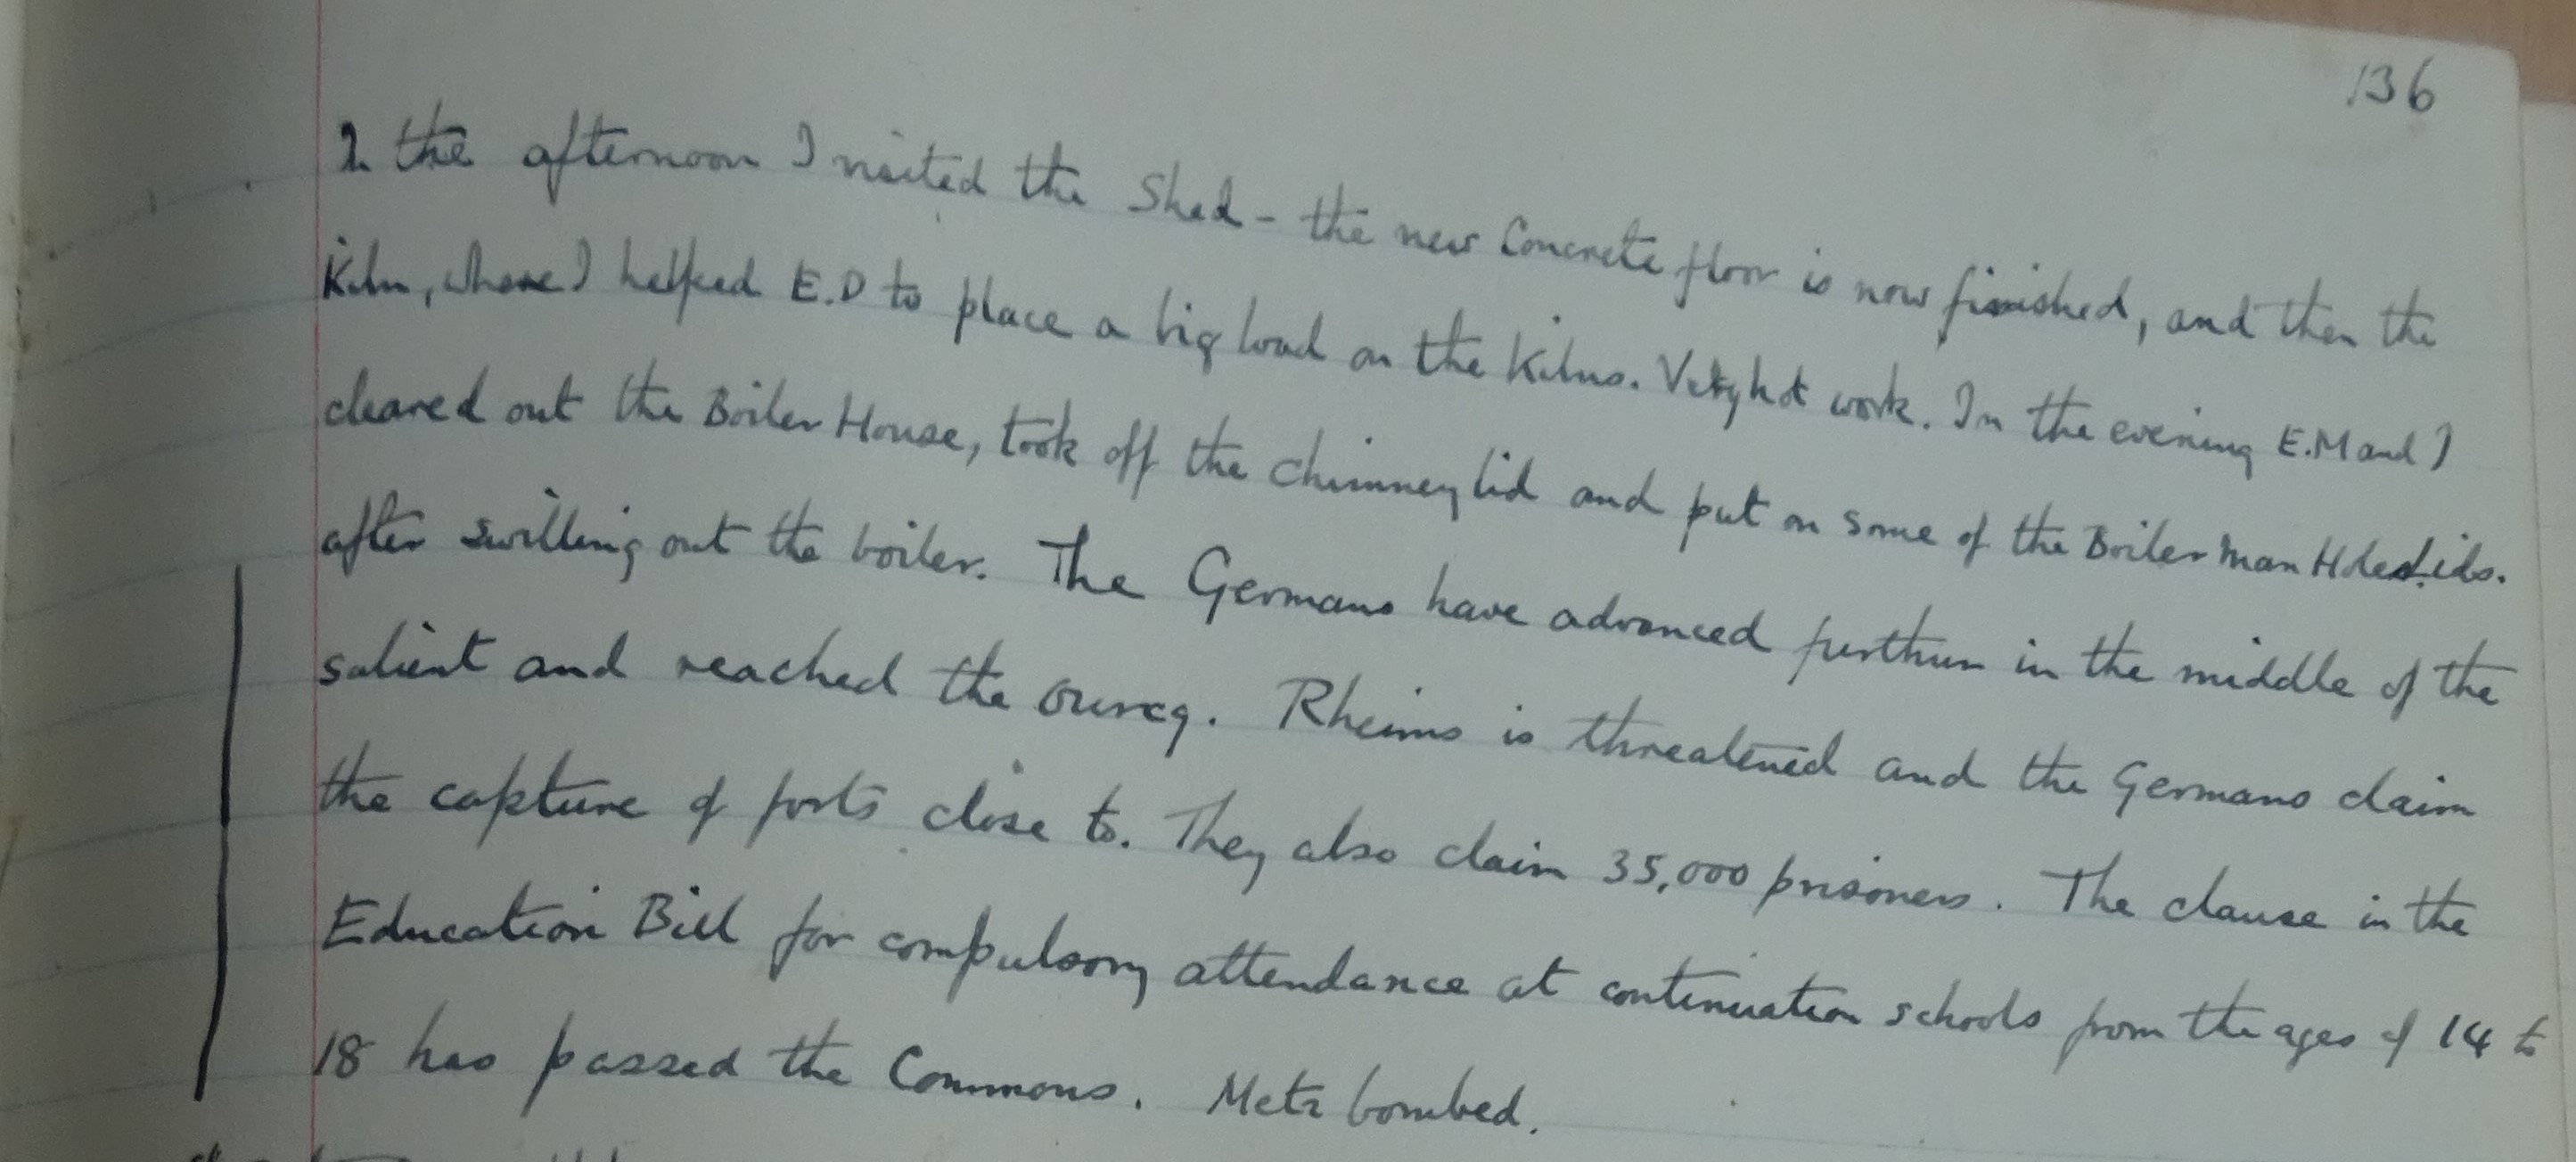 136
In the afternoon I visited the Shed - the new Concrete floor is now finished, and then the
Kiln, where I helped E.D to place a big load on the Kilns. Very hot work. In the evening E.M and I
cleared out the Boiler House, took off the chimney lid and put on some of the Boiler Man Hole Lids.
after swilling out the boiler. The Germans have advanced further in the middle of the
salient and reached the Ourcq. Rheims is threatened and the Germans claim
the capture of forts close to. They also claim 35,000 prisoners. The clause in the
Education Bill for compulsory attendance at continuation schools from the ages of 14 to
18 has passed the Commons. Metz bombed.